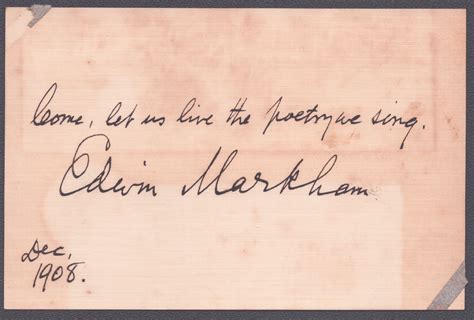 Come, let us live the poetry we sing.
Edwin Markham
Dec,
1908.